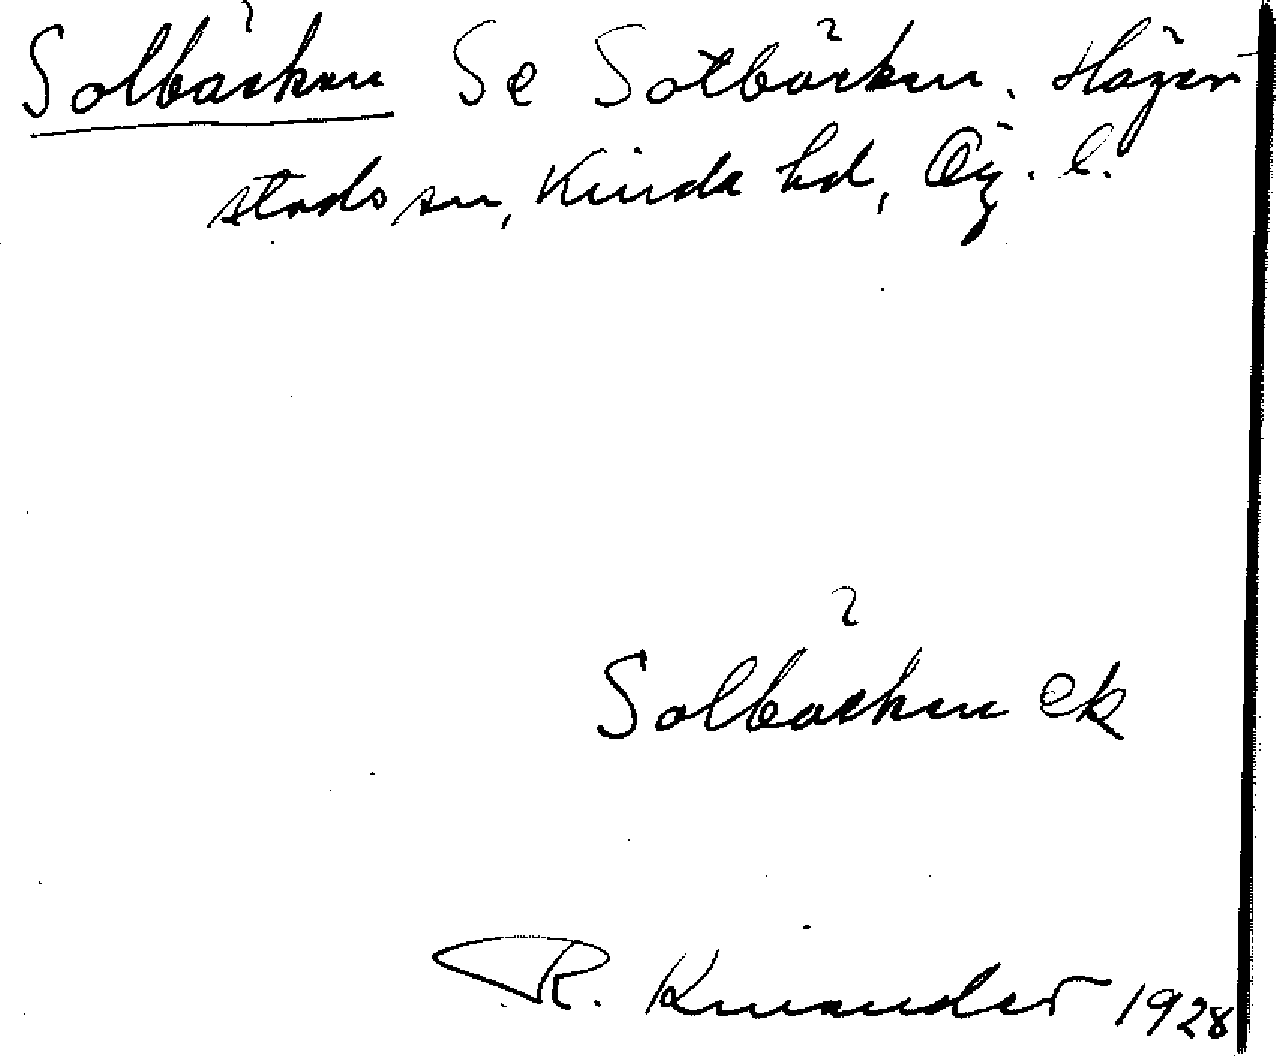 Solbäcken Se Sotbäcken. Hägerstads sn, Kinda hd, Ög. l.
Solbäcken ek
R. Kinander 1928